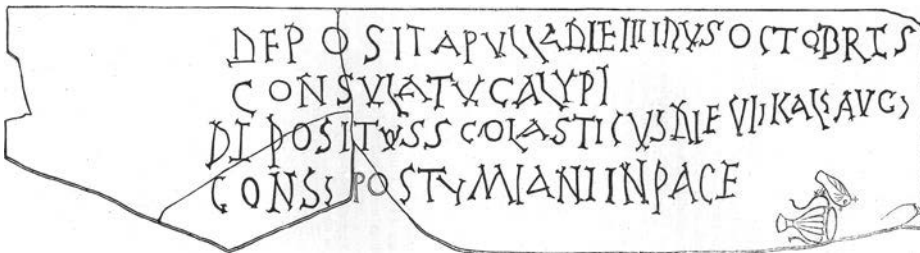 DEPOSITAPULLADIEIIIIIDVSOCTOBRIS
CONSVLATVCALYPI
DIPOSITVSSCOLASTICVSDIEVIIKALSAVGS
CONSSPOSTVMIANIINPACE